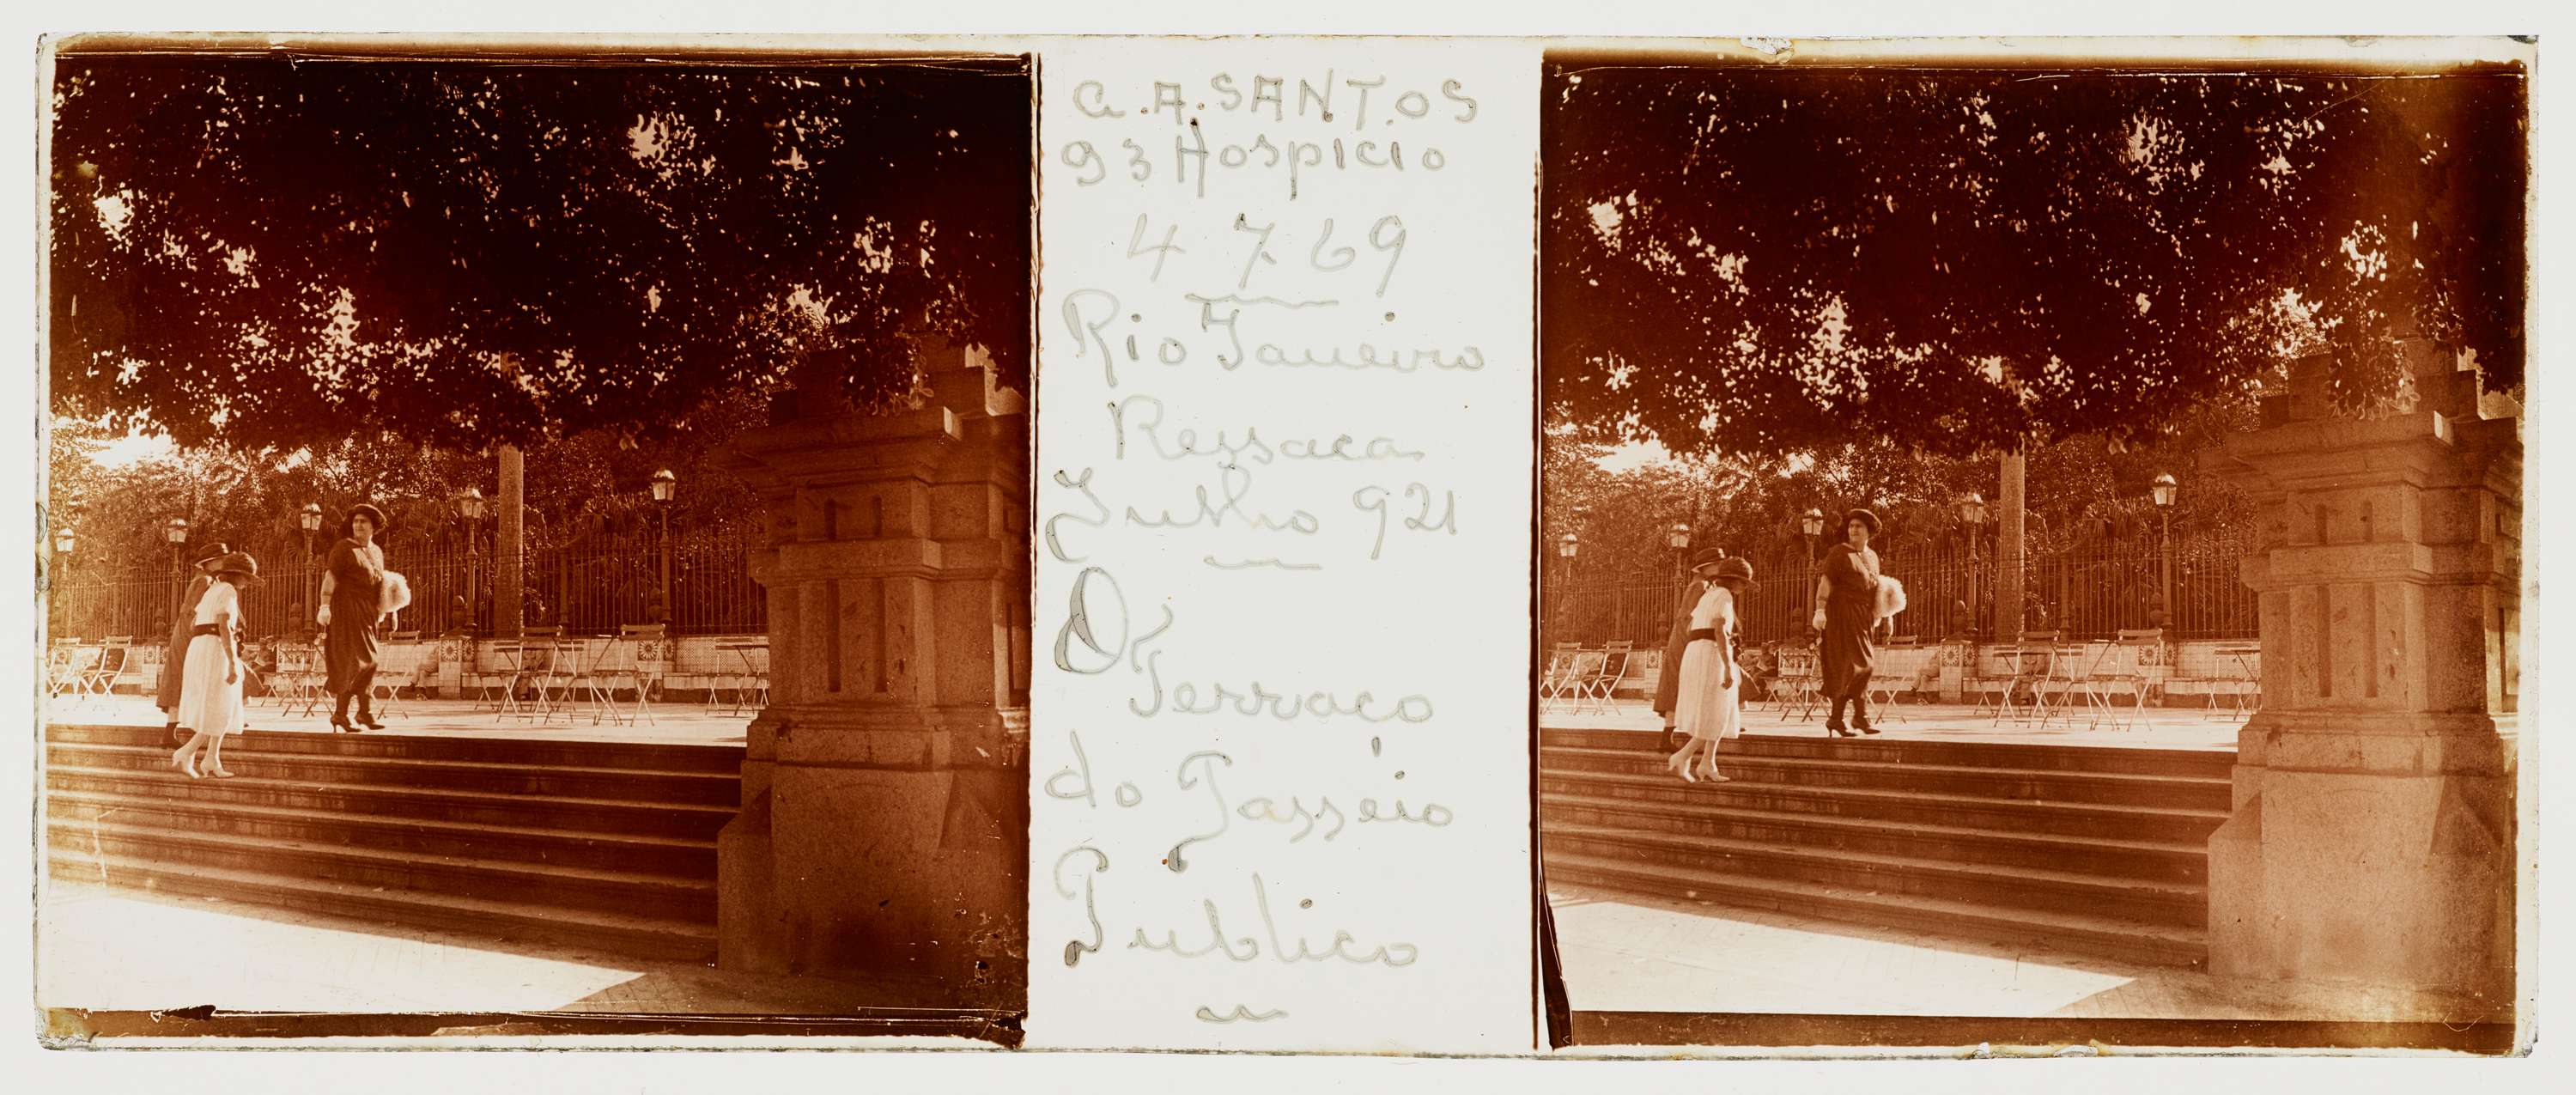 G.A.SANTOS
93 Hospicio
4769
Rio Janeiro
Ressaca
Julho 921
O Terraço
do Passeio
Publico